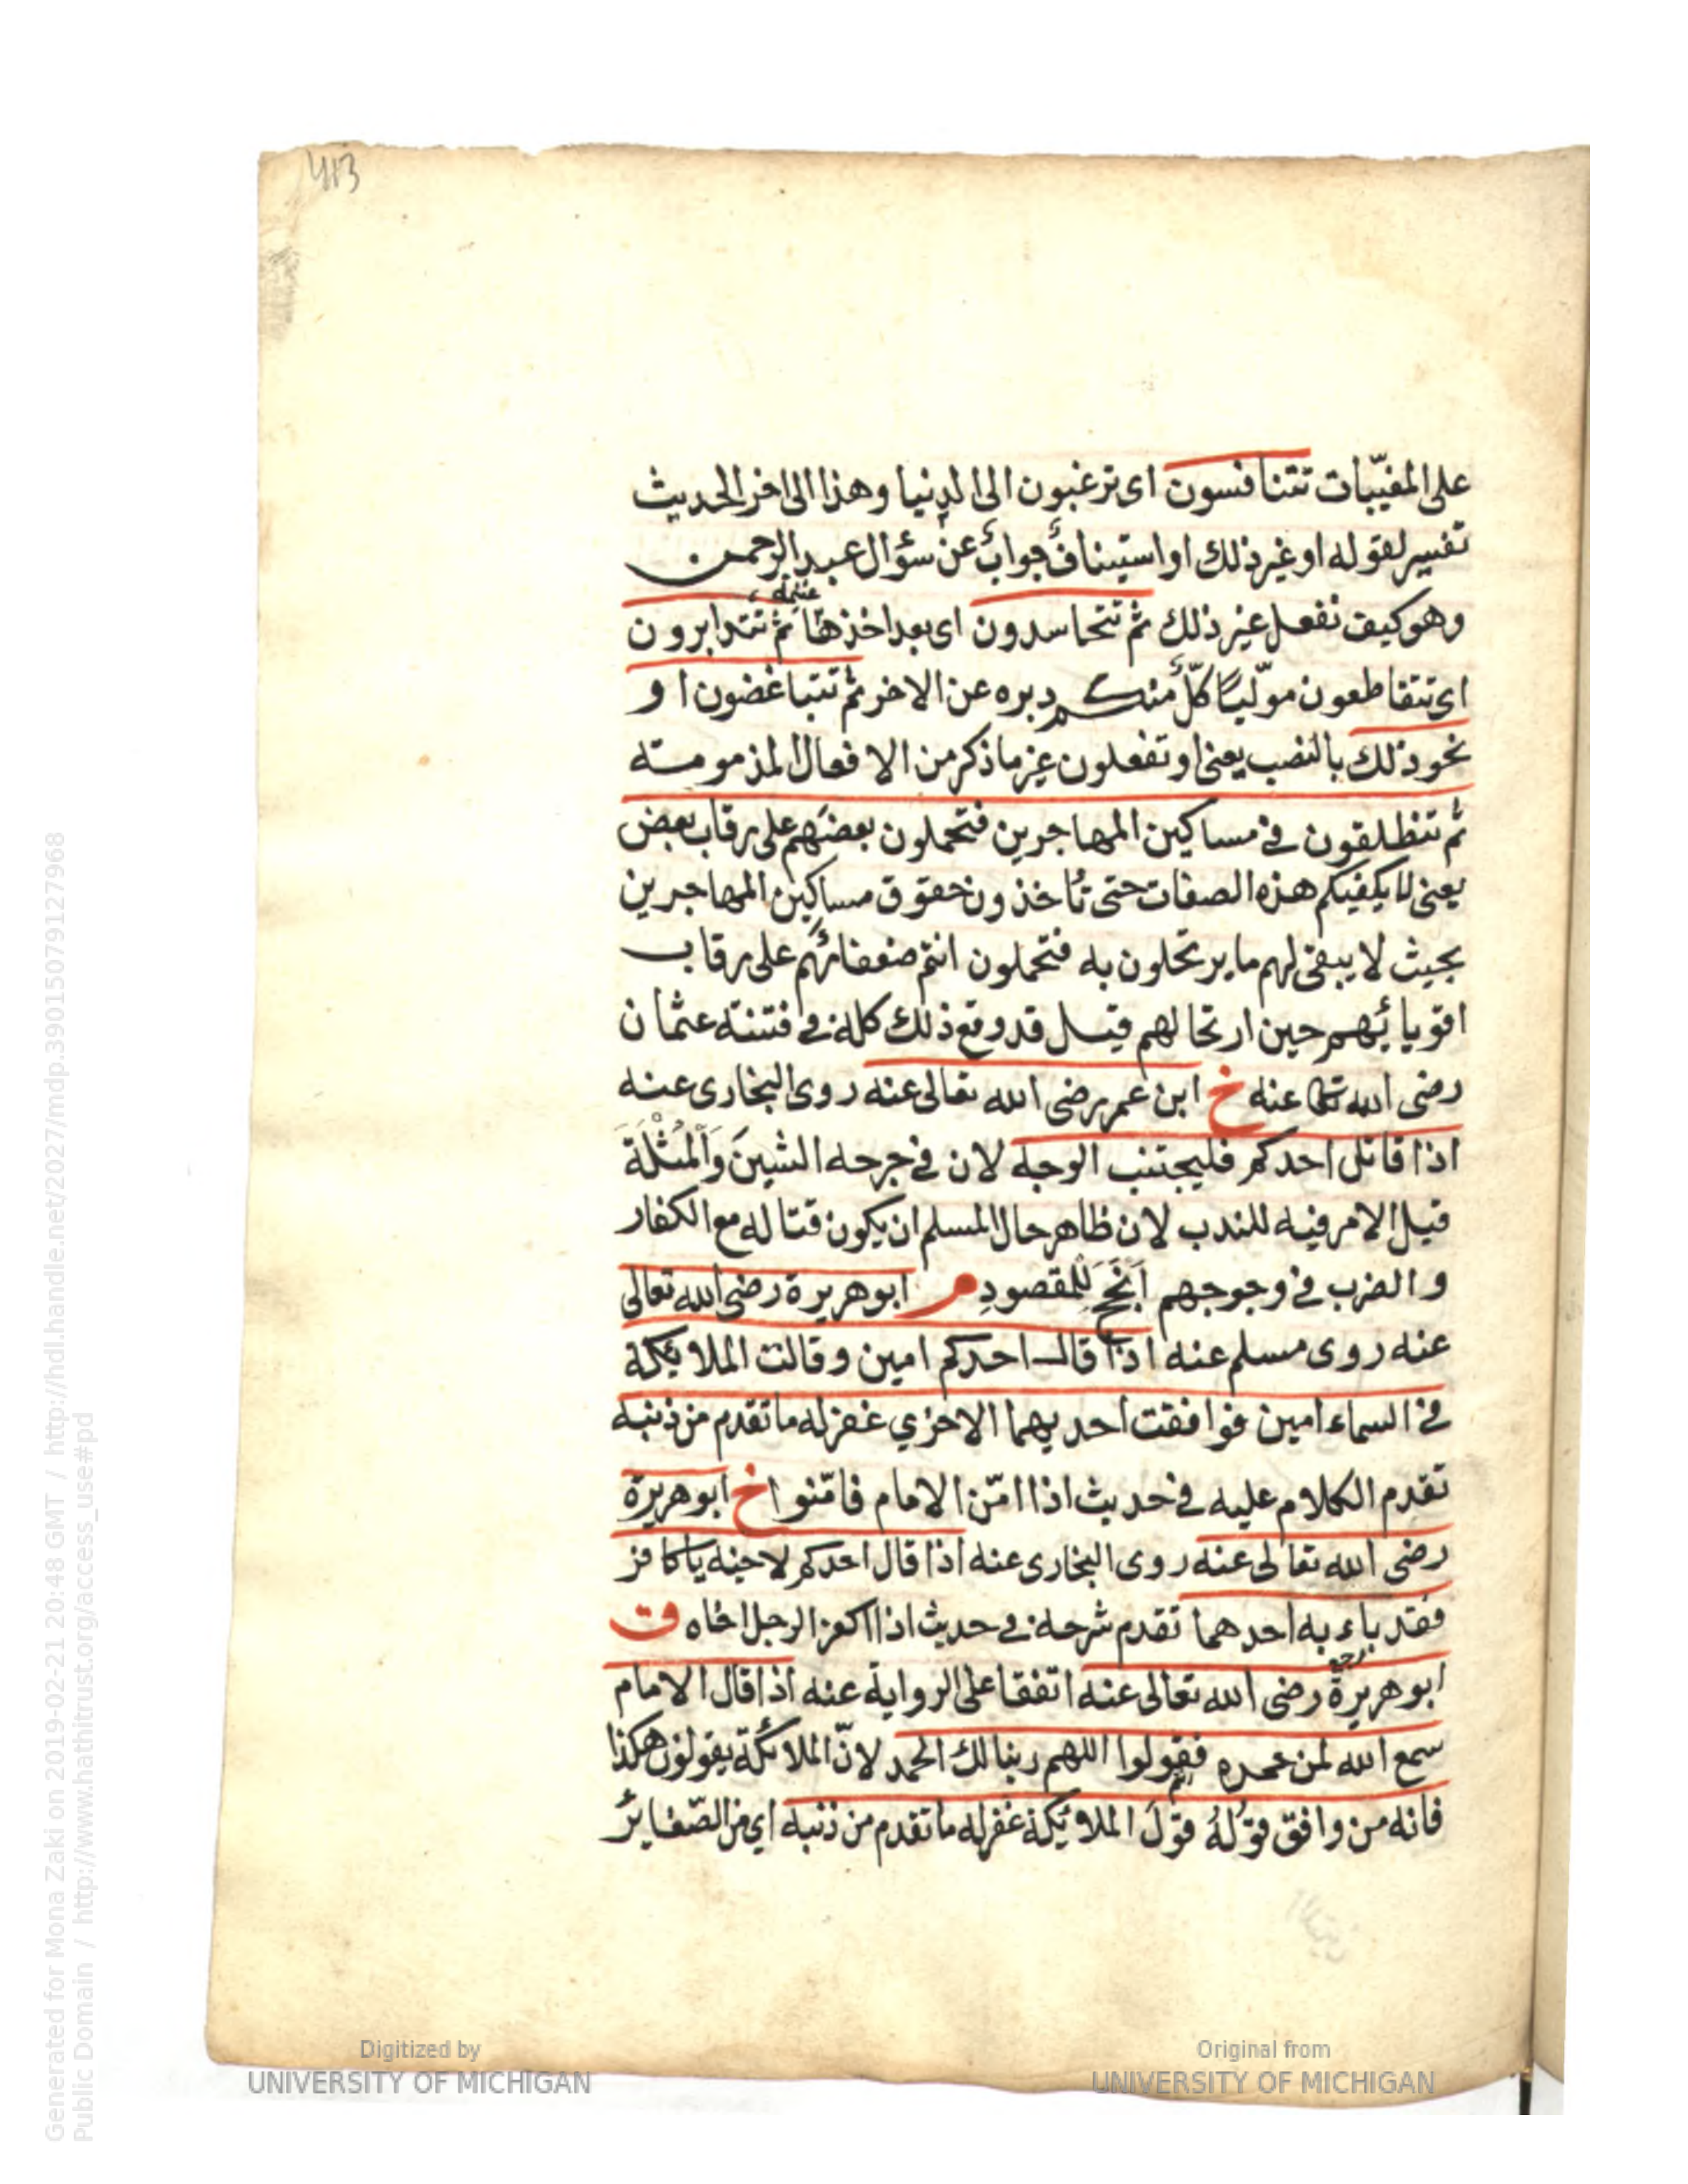 413
على المغيّبات تتنافسون اى ترغبون الى الدنيا وهذا الى اخر الحديث
تفسير لقوله او غير ذلك او استيناف جواب عن سؤال عبد الرحمن
وهو كيف نفعل غير ذلك ثم تتحاسدون اى بعد اخذها ثم تتدابرون
اى تتقاطعون موليّا كلّ منكم دبره عن الاخر ثم تتباغضون او
نحو ذلك بالنصب يعنى او تفعلون غير ما ذكر من الافعال المذمومة
ثم تنطلقون فى مساكين المهاجرين فتحملون بعضهم على رقاب بعض
يعنى لا يكفيكم هذه الصفات حتى تأخذون حقوق مساكين المهاجرين
بحيث لا يبقى لهم ما يرتحلون به فتحملون انتم ضعفائهم على رقاب
اقويائهم حين ارتحالهم قيل قد وقع ذلك كله فى فتنة عثمان
رضى الله تعا عنه خ ابن عمر رضى الله تعالى عنه روى البخارى عنه
اذا قاتل احدكم فليجتنب الوجه لان فى جرحه الشين وَالْمُثْلَةَ
قيل الامر فيه للندب لان ظاهر حال المسلم ان يكون قتاله مع الكفار
والضرب فى وجوههم اَنْجَحُ لِلْمقصودِ م ابو هريرة رضى الله تعالى
عنه روى مسلم عنه اذا قال احدكم امين وقالت الملائكة
فى السماء امين فوافقت احديهما الاخرى غفر له ما تقدم من ذنبه
تقدم الكلام عليه فى حديث اذا امّن الامام فامّنوا خ ابو هريرة
رضى الله تعالى عنه روى البخارى عنه اذا قال احدكم لاخيه يا كافر
فقد باء به احدهما تقدم شرحه فى حديث اذا اكفر الرجل اخاه ق
ابو هريرة رضى الله تعالى عنه اتفقا على الرواية عنه اذا قال الامام
سمع الله لمن حمده فقولوا اللهم ربنا لك الحمد لانّ الملائكة يقولون هكذا
فانه من وافق قوْلُهُ قوْلَ الملائكة غفر له ما تقدم من ذنبه اي من الصّغاير
Digitized by
UNIVERSITY OF MICHIGAN
Original from
UNIVERSITY OF MICHIGAN
Generated for Mona Zaki on 2019-02-21 20:48 GMT / http://hdl.handle.net/2027/mdp.39015079127968
Public Domain / http://www.hathitrust.org/access_use#pd